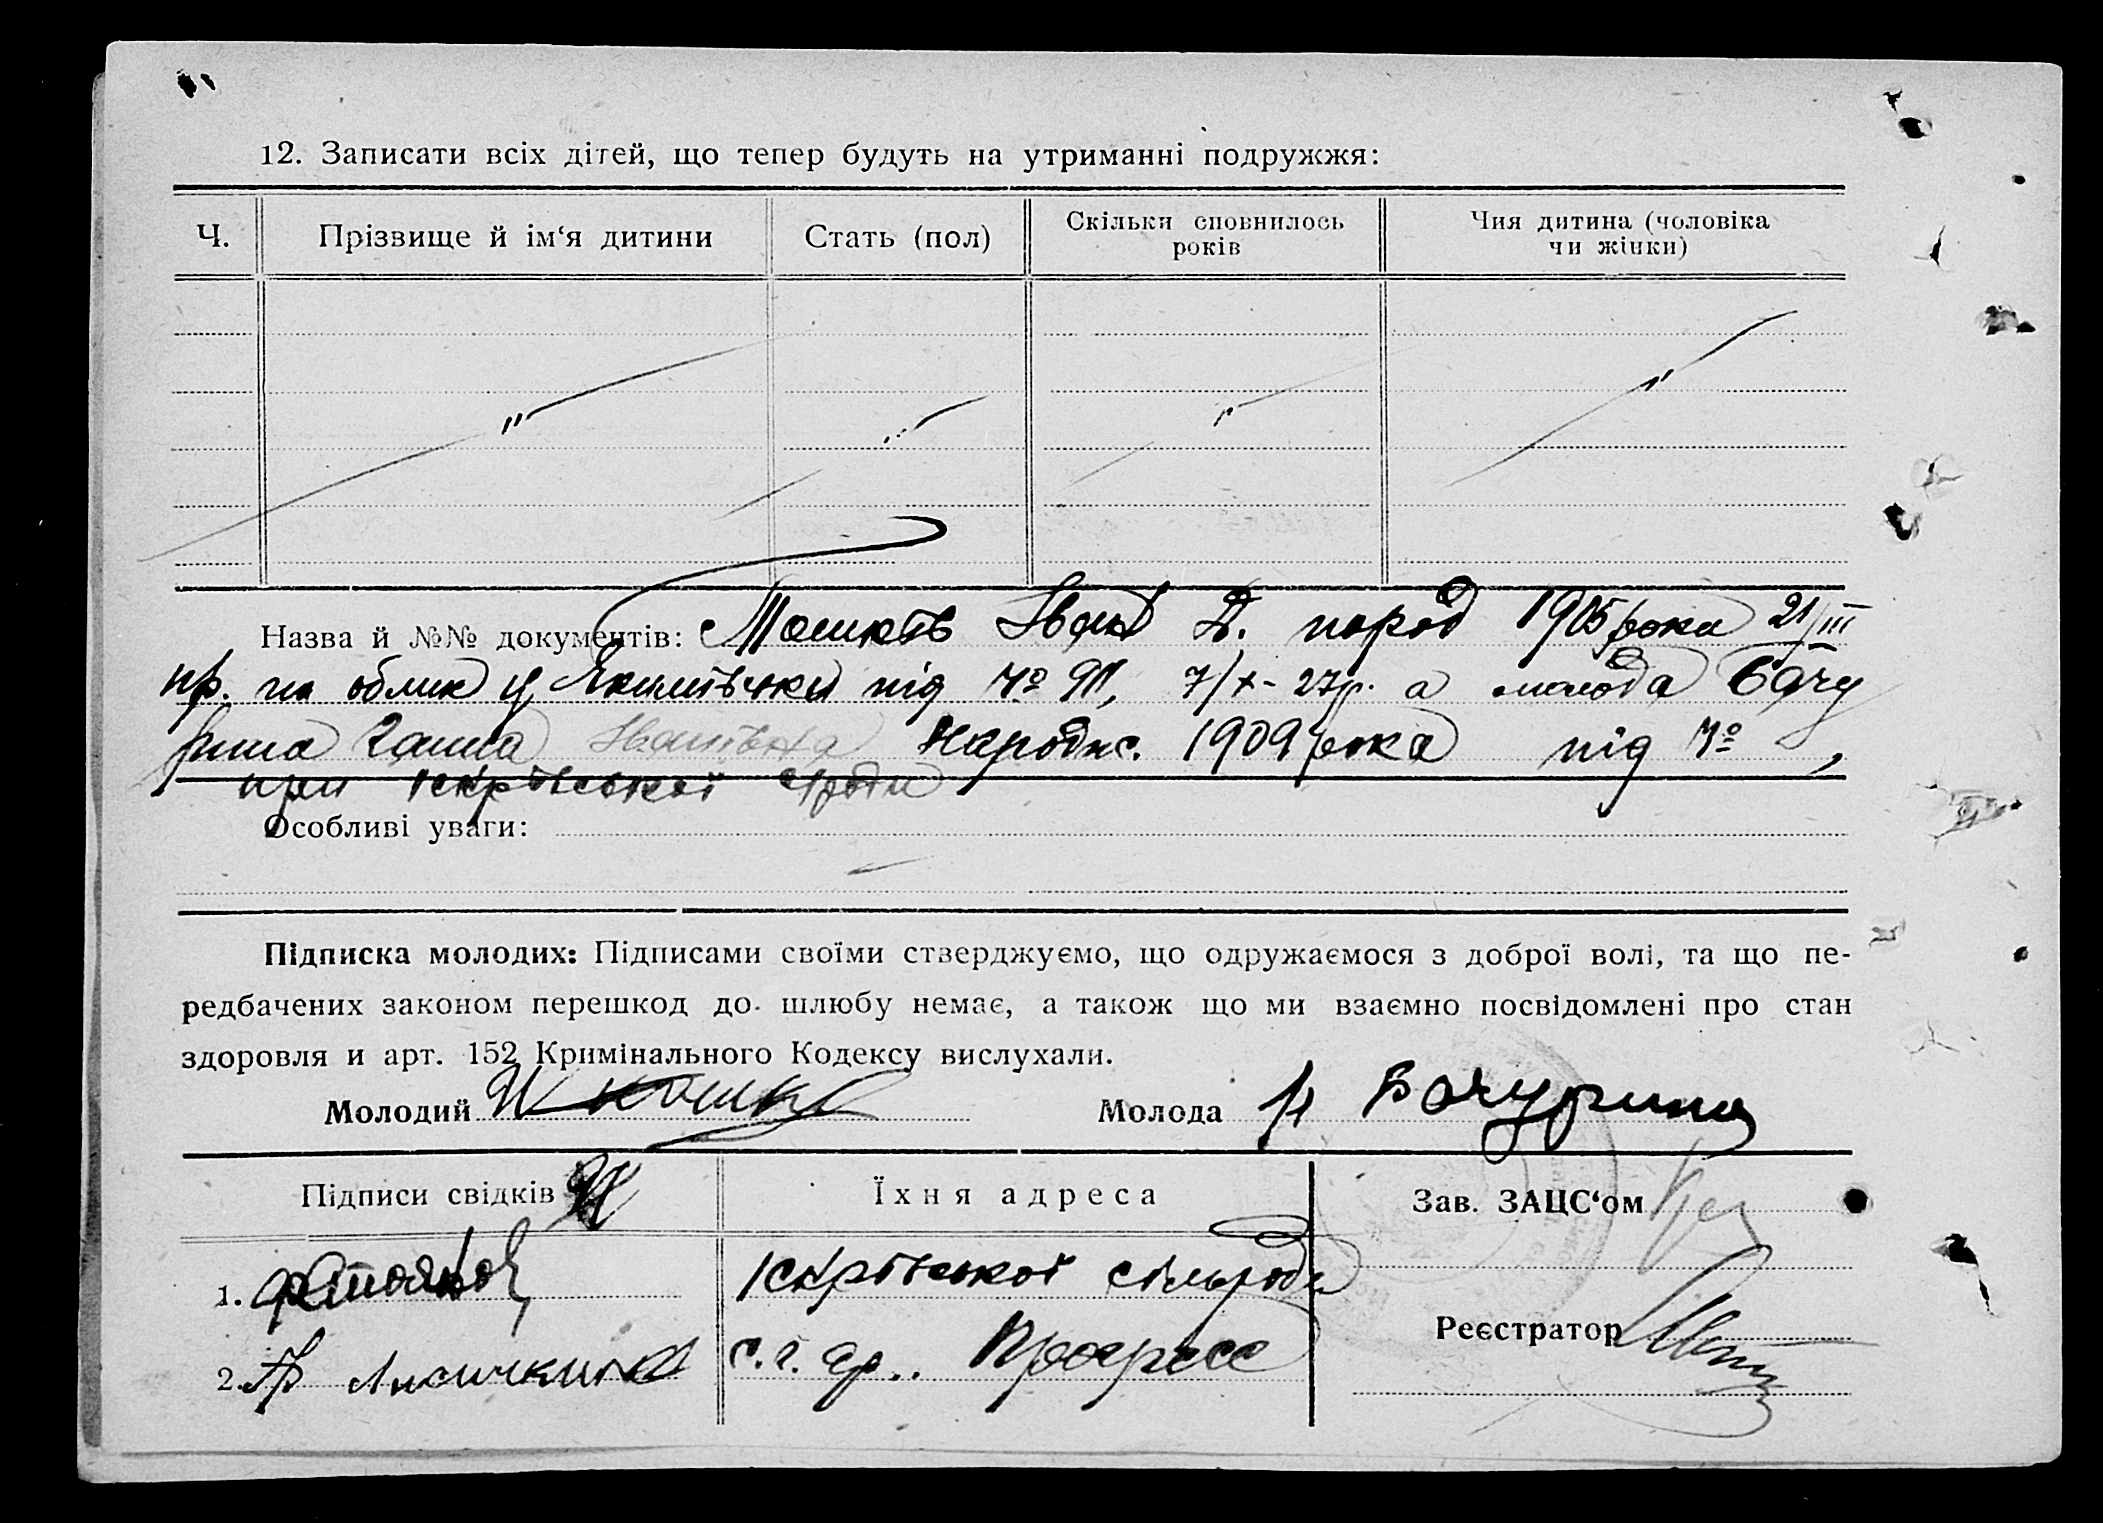 12. Записати всіх дітей, що тепер будуть на утриманні подружжя:
Ч. Прізвище й ім‘я дитини Стать (пол) Скільки сповнилось років Чия дитина (чоловіка чи жінки)
Назва й №№ документів: Іван Д. народ 1905 рока 21/III
пр. на облик у під № 911, 7/X-27р. а молода Бачу
рина Ганна Іванівна народж. 1909 рока під № ,
при Іскрівської с/ради
Особливі уваги:
Підписка молодих: Підписами своїми стверджуємо, що одружаємося з доброї волі, та що пе-
редбачених законом перешкод до шлюбу немає, а також що ми взаємно посвідомлені про стан
здоровля и арт. 152 Кримінального Кодексу вислухали.
Молодий Молода Бачурина
Підписи свідків Їхня адреса Зав. ЗАЦС‘ом
1. Іскрівської сільради
Реєстратор
2. с. г. ар.. Прогресс